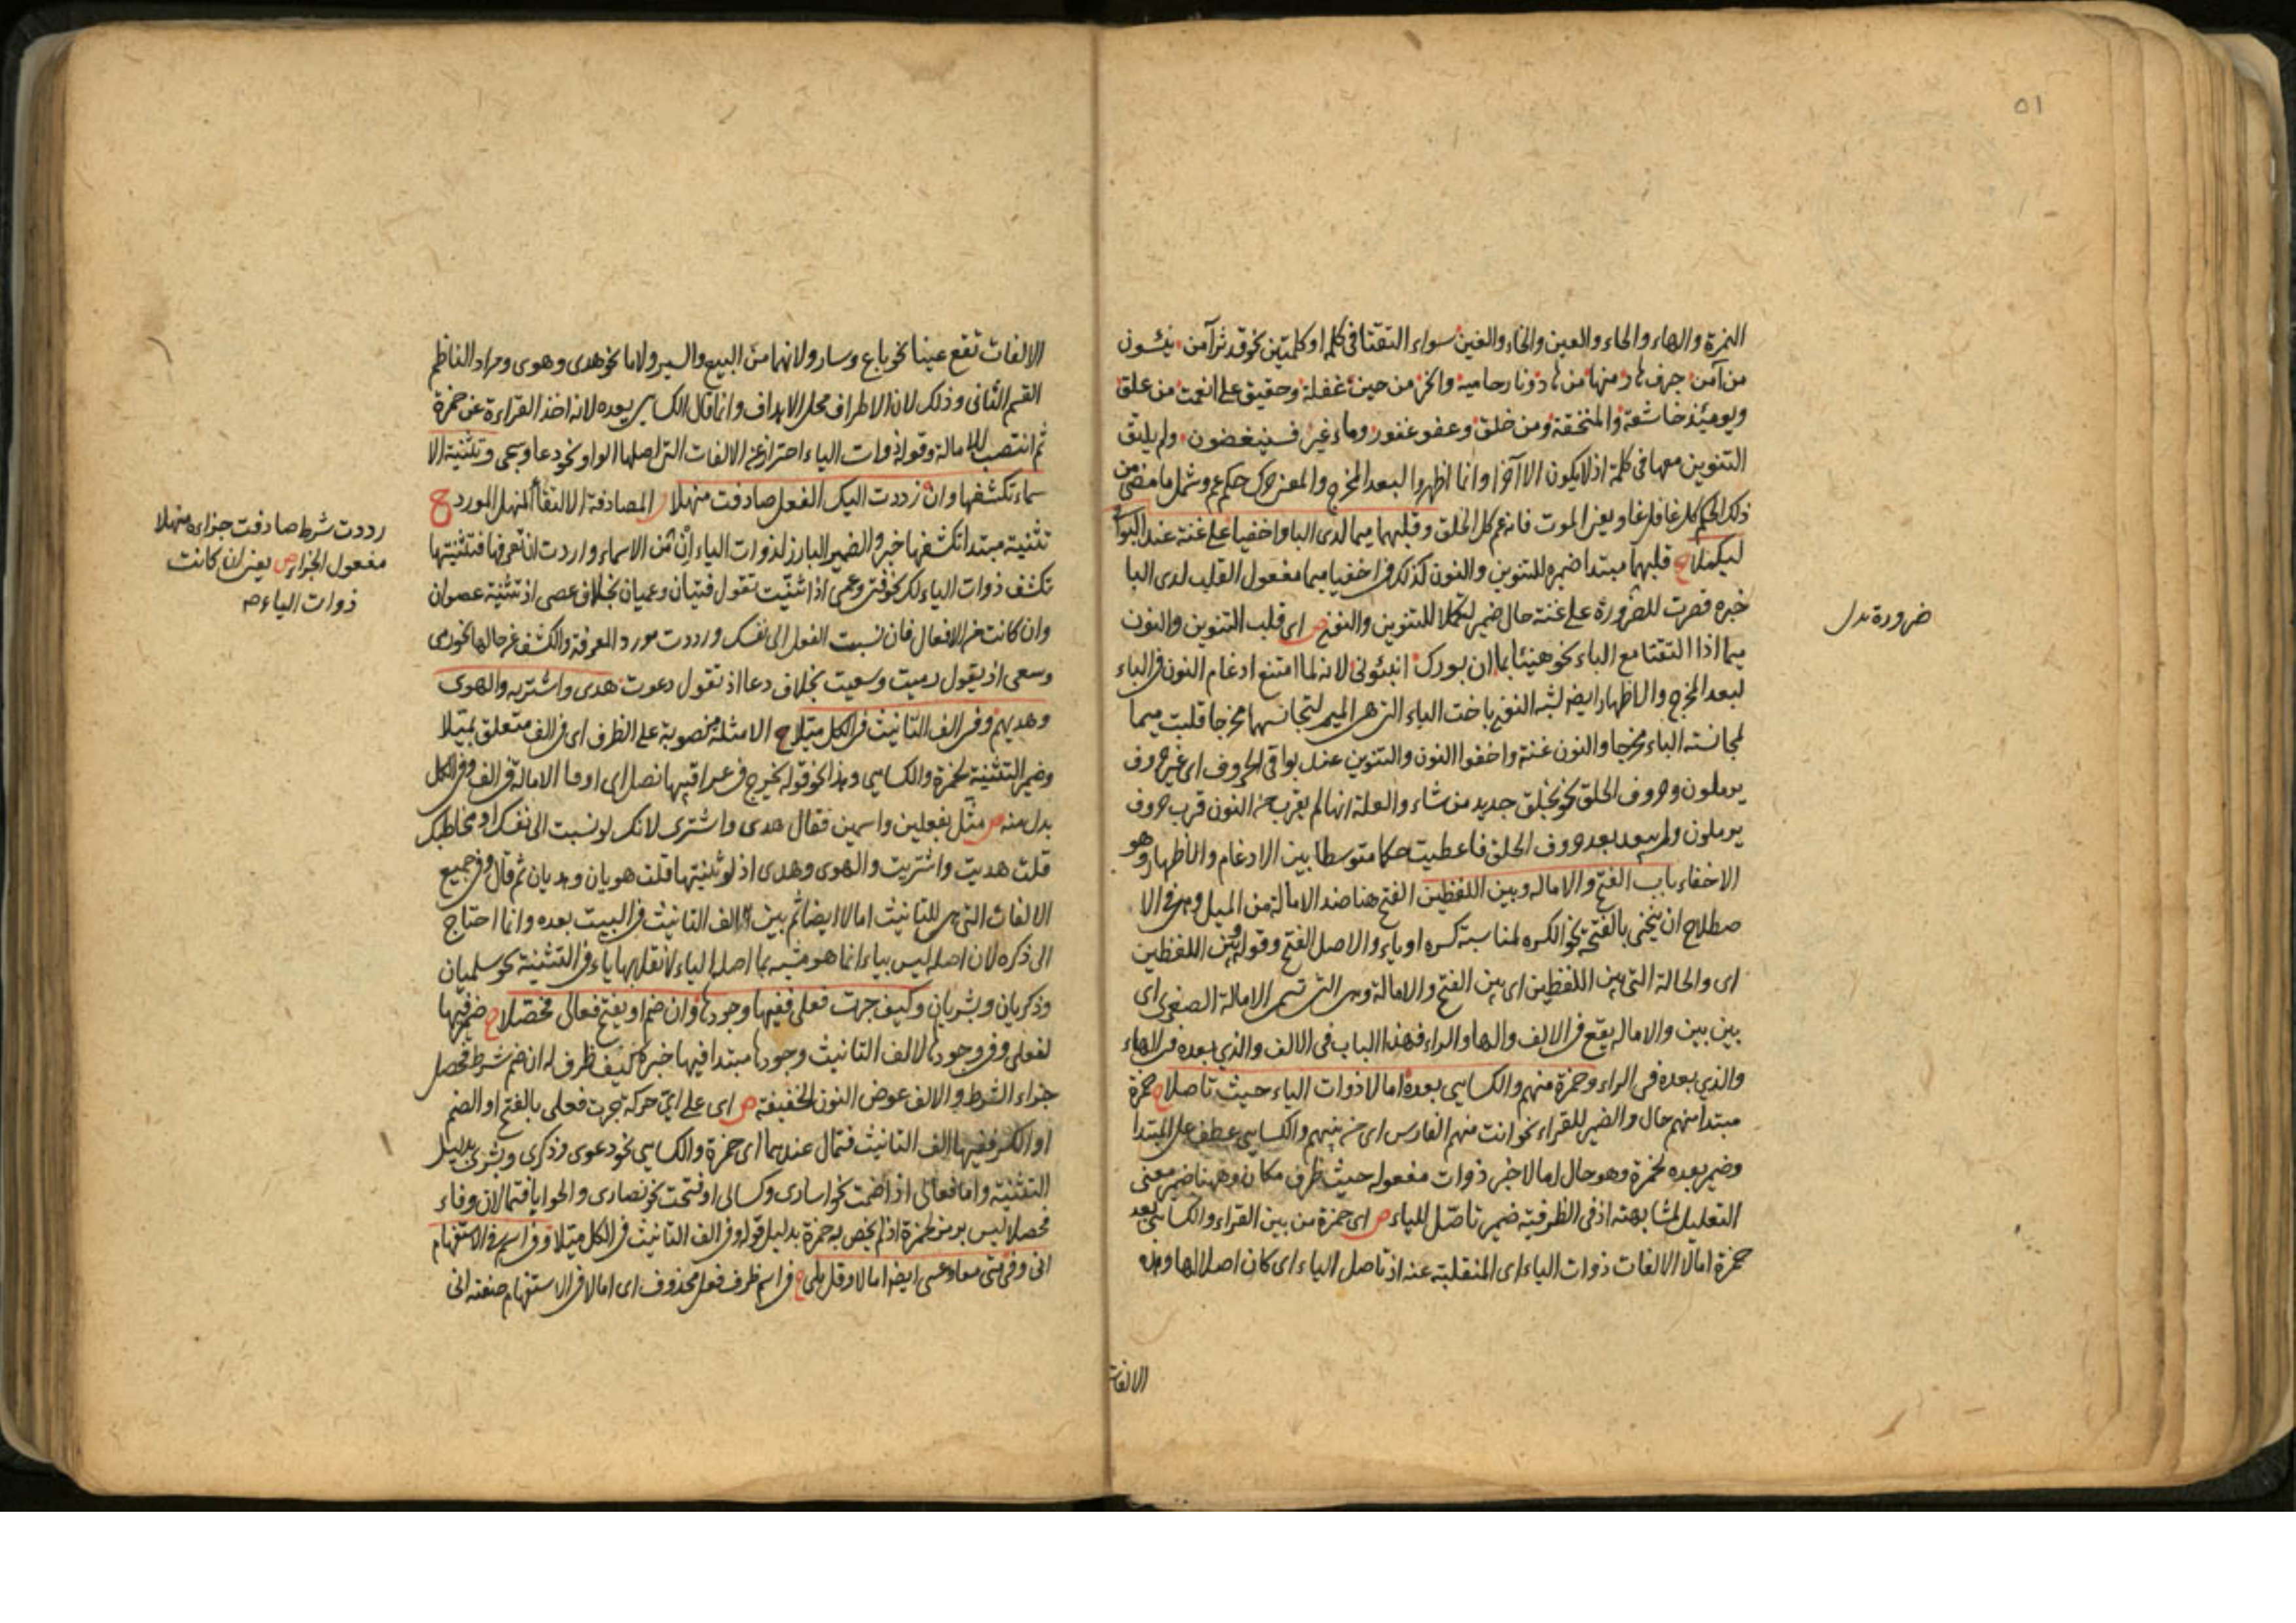 ٥١
الهمزة والهاء والحاء والعين والخاء والغين سواء التقتا في كلمة او كلمتين نحو قد نرآمن ينئون
من آمن جرف هار منها من هاد ونار حامية وانحر من حين غفلة وحقيق على انعمت من علق
ويومئذ خاشعة والمنخنقة ومن خلق وعفو غفور وماء غير فسينغضون ولم يلتق
التنوين معها في كلمة اذ لا يكون الا آخرا وانما اظهروا لبعد المخرج والمعنى حكم عم وشمل ما مضى من
ذلك الحكم كل غافل غا ويعنى الموت فانه عم كل الخلق وقلبهما ميما لدى البا واخفيا على غنة عند البوا
ليكملا ح قلبهما مبتدا ضميره للتنوين والنون كذلك في اخفيا ميما مفعول القلب لدى البا
خبره قصرت للضرورة على غنة حال ضمير لتكملا للتنوين والنون ص اى قلب التنوين والنون
ضرورة بدل
ميما اذا التقتا مع الباء نحو هنيئا بما ان بورك انبئونى لانه لما امتنع ادغام النون في الباء
لبعد المخرج والاظهار ايضا لشبه النون باخت الباء التى هى الميم لتجانسهما مخرجا قلبت ميما
لمجانسته الباء مخرجا والنون غنة واخفوا النون والتنوين عند بواقى الحروف اى غير حروف
يرملون وحروف الحلق نحو بخلق جديد من شاء والعلة انها لم يقرب من النون قرب حروف
يرملون ولم يبعد بعد حروف الحلق فاعطيت حكما متوسطا بين الادغام والاظهار وهو
الاخفاء باب الفتح والامالة وبين اللفظين الفتح هنا ضد الامالة من الميل وهى في الا
صطلاح ان ينحى بالفتحة نحو الكسرة لمناسبة كسرة او ياء والاصل الفتح وقوله وبين اللفظين
اى والحالة التى بين اللفظين اى بين الفتح والامالة وهى التى تسمى الامالة الصغرى اى
بين بين والامالة يقع في الالف والها والراء فهذا الباب في الالف والذي بعده في الهاء
والذي بعده في الراء وحمزة منهم والكسايى بعده امالا ذوات الياء حيث تاصلا ح حمزة
مبتدا منهم حال والضمير للقراء نحو انت منهم الفارس اى من بينهم والكسايى عطف على المبتدا
وضمير بعده لحمزة وهو حال امالا خبر ذوات مفعوله حيث ظرف مكان وههنا ضمير معنى
التعليل لمشابهته اذ في الظرفية ضمير تاصل للياء ص اى حمزة من بين القراء والكسايى بعد
حمزة امالا الالفات ذوات الياء اى المنقلبة عنه اذ تاصل الياء اى كان اصلا لها وهذه
الالفات
الالفات تقع عينا نحو باع وسار ولانهما من البيع والسير ولاما نحو هدى وهوى ومراد الناظم
القسم الثانى وذلك لان الاطراف محل الابداف وانما قال الكسايى بعده لانه اخذ القراءة عن حمزة
ثم انتصب للامالة وقوله ذوات الياء احتراز عن الالفات التى اصلها الواو نحو دعا وسجى وتثنية الا
سماء تكشفها وان رددت اليك الفعل صادفت منهلا المصادفة الالتقاء المنهل المورد ح
تثنية مبتدا تكشفها خبره والضمير البارز لذوات الياء ان من الاسماء واردت ان تعرفها فتثنيتها
تكشف ذوات الياء لك نحو فتى وعمى اذا ثنيت تقول فتيان وعميان بخلاف عصى اذ تثنية عصوان
وان كانت من الافعال فان نسبت الفعل الى نفسك ورددت مورد المعرفة والكشف عن حالها نحو رمى
وسعى اذ يقول رميت وسعيت بخلاف دعا اذ تقول دعوت هدى واشتريه والهوى
وهديهم وفي الف التانيث في الكل ميلا ح الامثلة منصوبة على الظرف اى في الف متعلق بميلا
وضمير التثنية لحمزة والكسايى وهذا نحو قوله يخرج في عراقيبها نصلى اى اوقعا الامالة في الف وفي الكل
بدل منه ص مثل بفعلين واسمين فقال هدى واشترى لانك لو نسبت الى نفسك او مخاطبك
قلت هديت واشتريت والهوى وهدى اذ لو ثنيتها قلت هويان وهديان ثم قال وفي جميع
الالفات التى هى للتانيث امالا ايضا ثم بين الف التانيث في البيت بعده وانما احتاج
الى ذكره لان اصله ليس بياء انما هو مشبه بما اصله الياء لانقلابها ياء في التثنية نحو سلميان
وذكريان وبشريان وكيف جرت فعلى ففيها وجودها وان ضم او يفتح فعالى فحصلا ح ضمير فيها
لفعلى وفي وجودها لالف التانيث وجودها مبتدا فيها خبره كيف ظرف له ان ضم شرط فحصل
جزاء الشرط والالف عوض النون الخفيفة ص اى على اى حركة جرت فعلى بالفتح او الضم
او الكسر ففيها الف التانيث فتمال عندهما اى حمزة والكسايى نحو دعوى وذكرى وبشرى بدليل
التثنية واما فعالى اذا ضمت نحو اسارى وكسالى او فتحت نحو نصارى والحوايا فتمالان وفاء
محصلا ليس برمز لحمزة اذ لم يخص به حمزة بدليل قوله وفي الف التانيث في الكل ميلا وفي اسم في الاستفهام
انى وفي متى معا وعسى ايضا امالا وقل بلى ح في اسم ظرف فعل محذوف اى امالا في الاستفهام صفته انى
رددت شرط صادفت جزاءه منهلا
مفعول الجزاء ص يعنى ان كانت
ذوات الياء ص